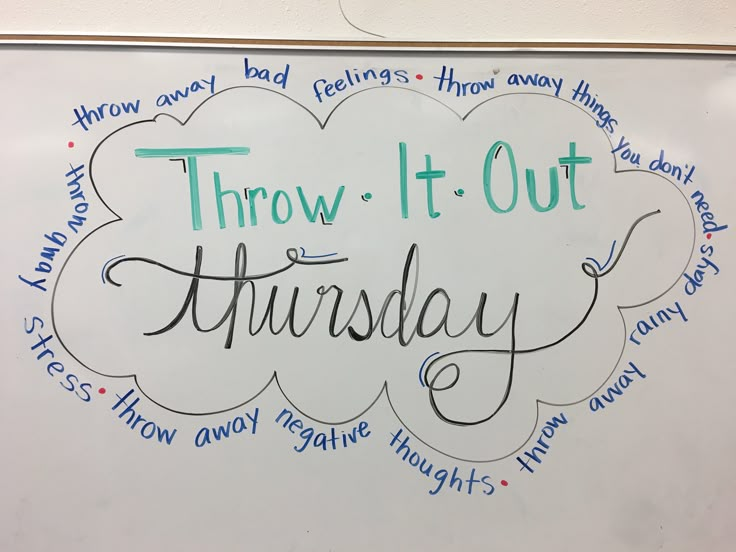 Throw · It · Out
thursday
throw away bad feelings • throw away things you don't need •
throw away rainy days
• throw away negative thoughts •
throw away stress •